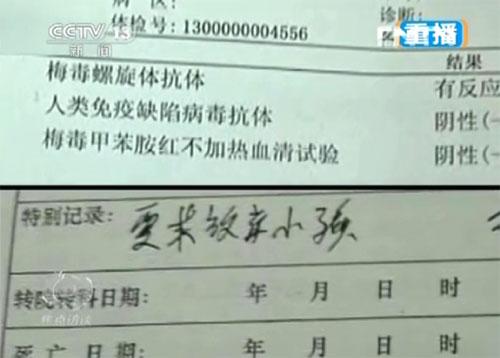 CCTV 13
新闻
重播
病 区:
诊断:
体检号:1300000004556
结果
梅毒螺旋体抗体
有反应
人类免疫缺陷病毒抗体
阴性(-
梅毒甲苯胺红不加热血清试验
阴性(-
特别记录:
要求放弃小孩
转院转科日期: 年 月 日 时
焦点访谈
死亡日期: 年 月 日 时